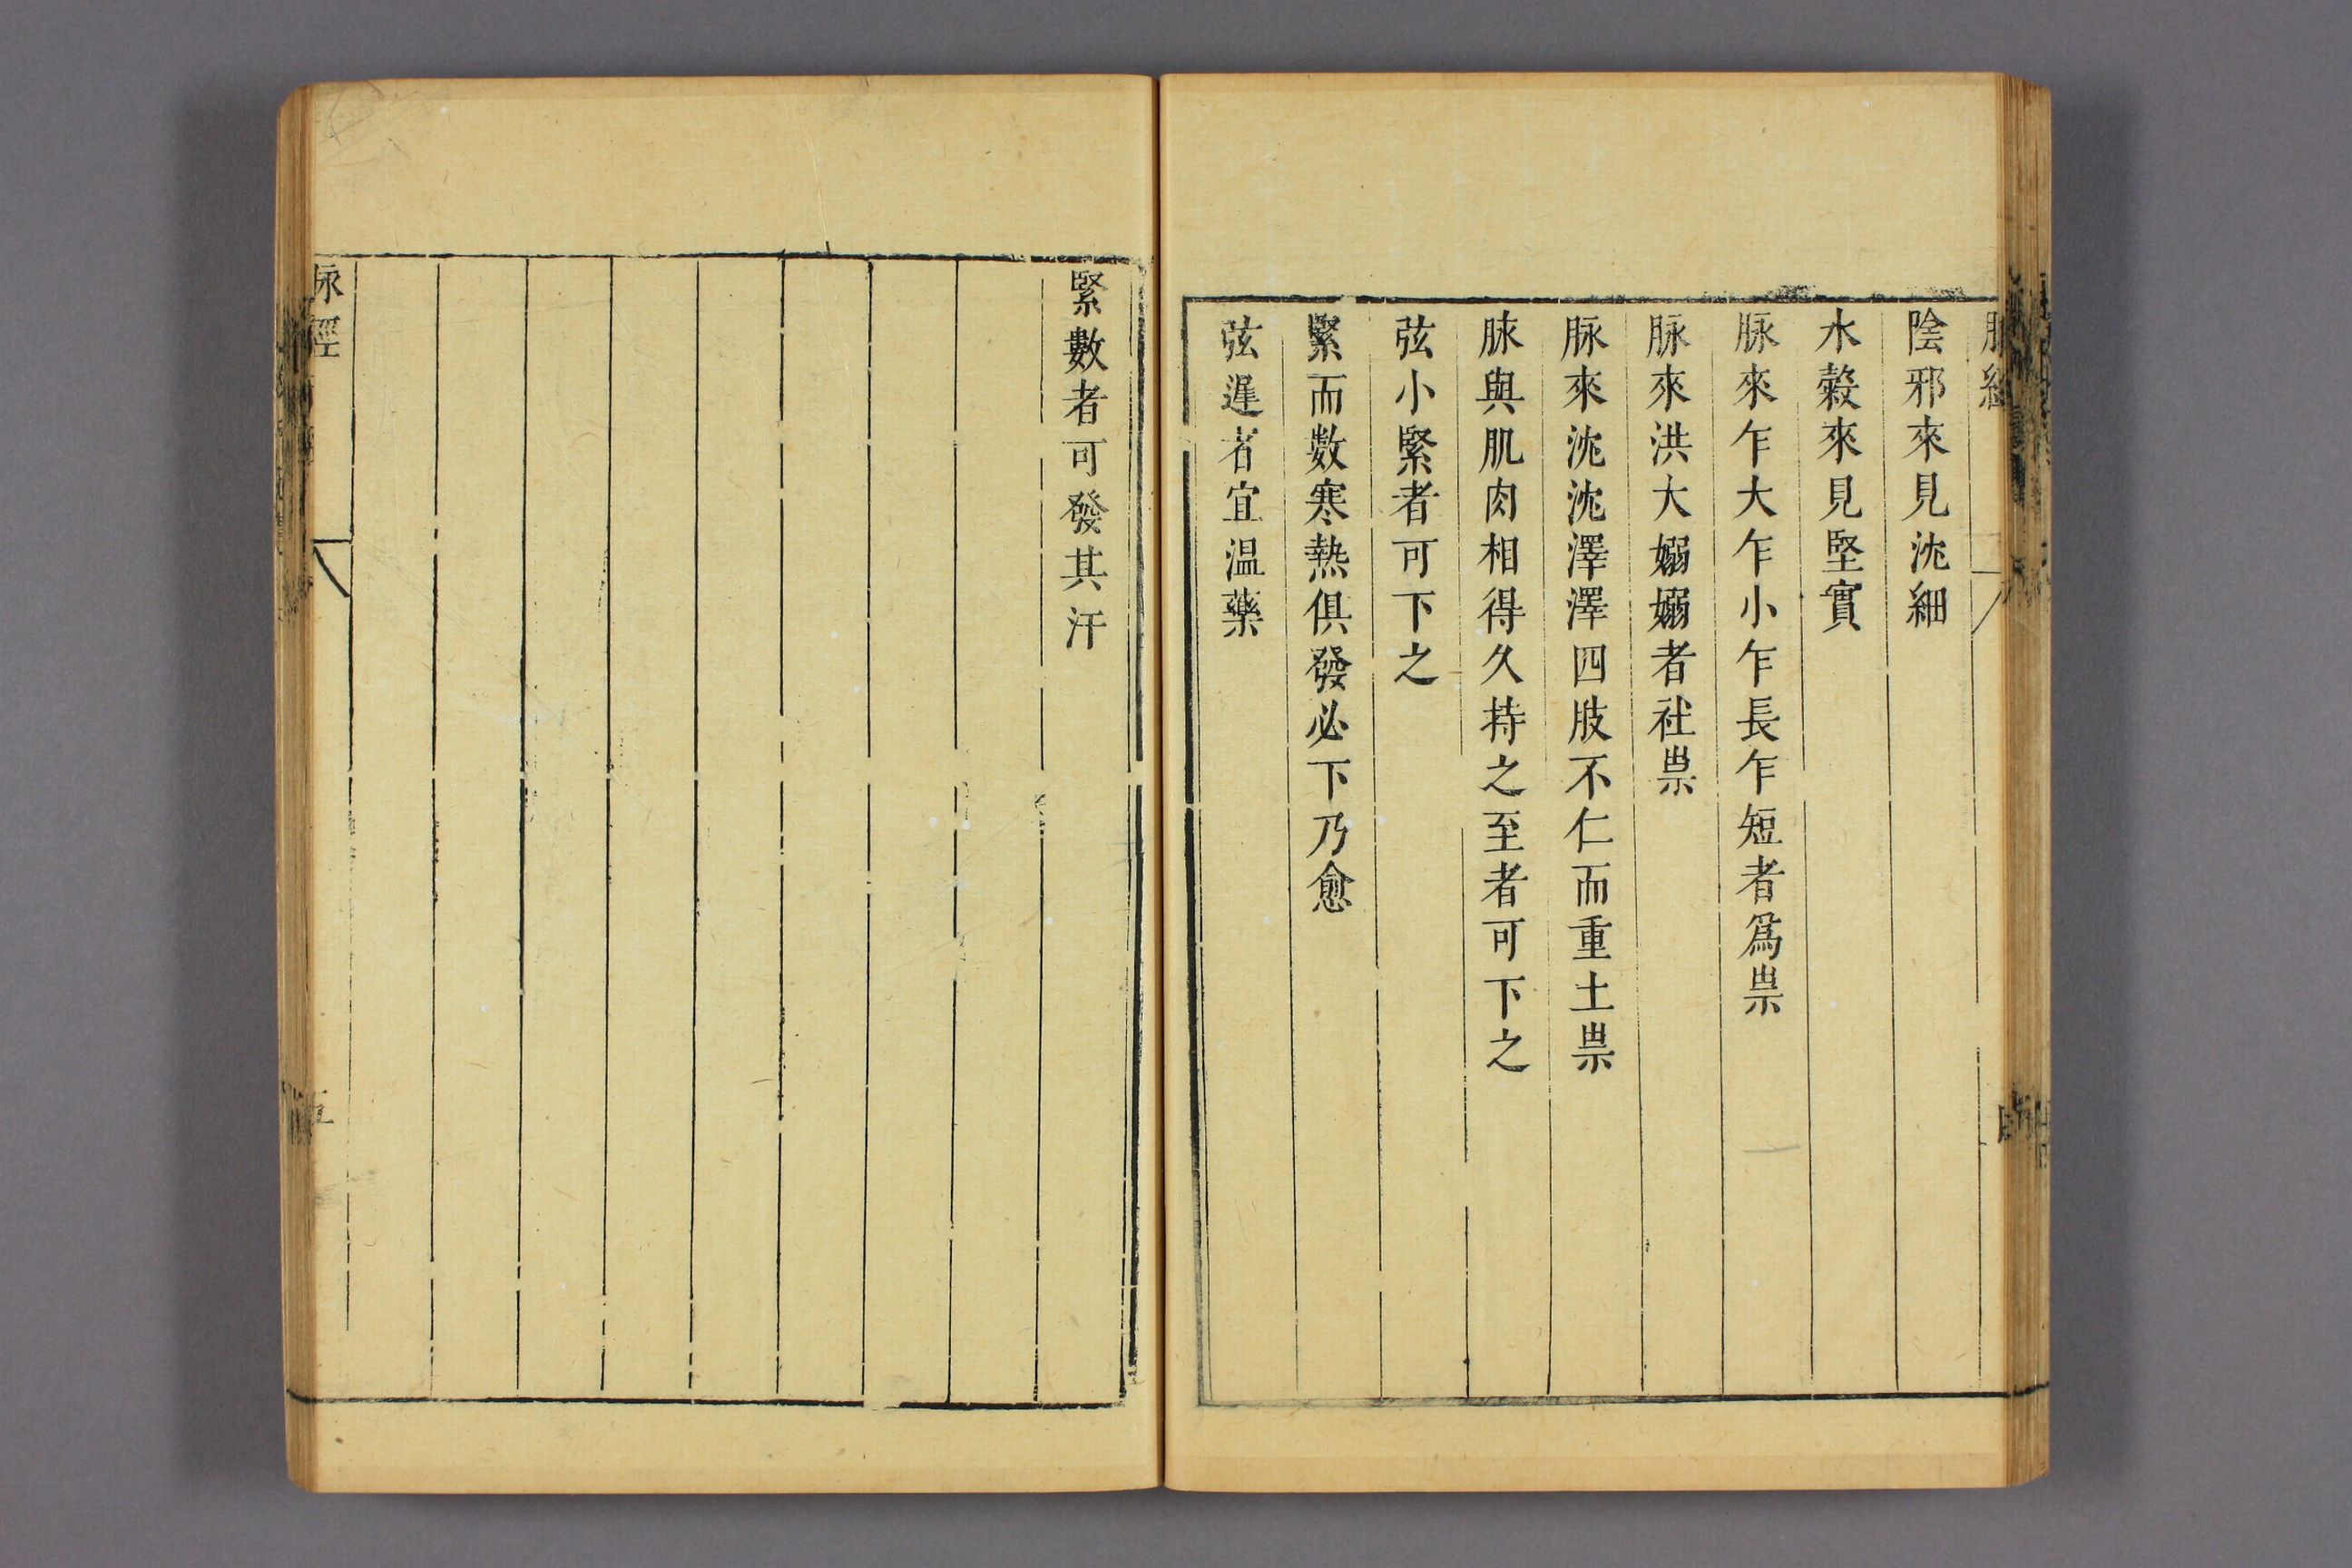 陰邪來見沈細
水穀來見堅實
脉來乍大乍小乍長乍短者爲祟
脉來洪大嫋嫋者社祟
脉來沈沈澤澤四肢不仁而重土祟
脉與肌肉相得久持之至者可下之
弦小緊者可下之
緊而數寒熱俱發必下乃愈
弦遲者宜温藥
緊數者可發其汗
脉經
五